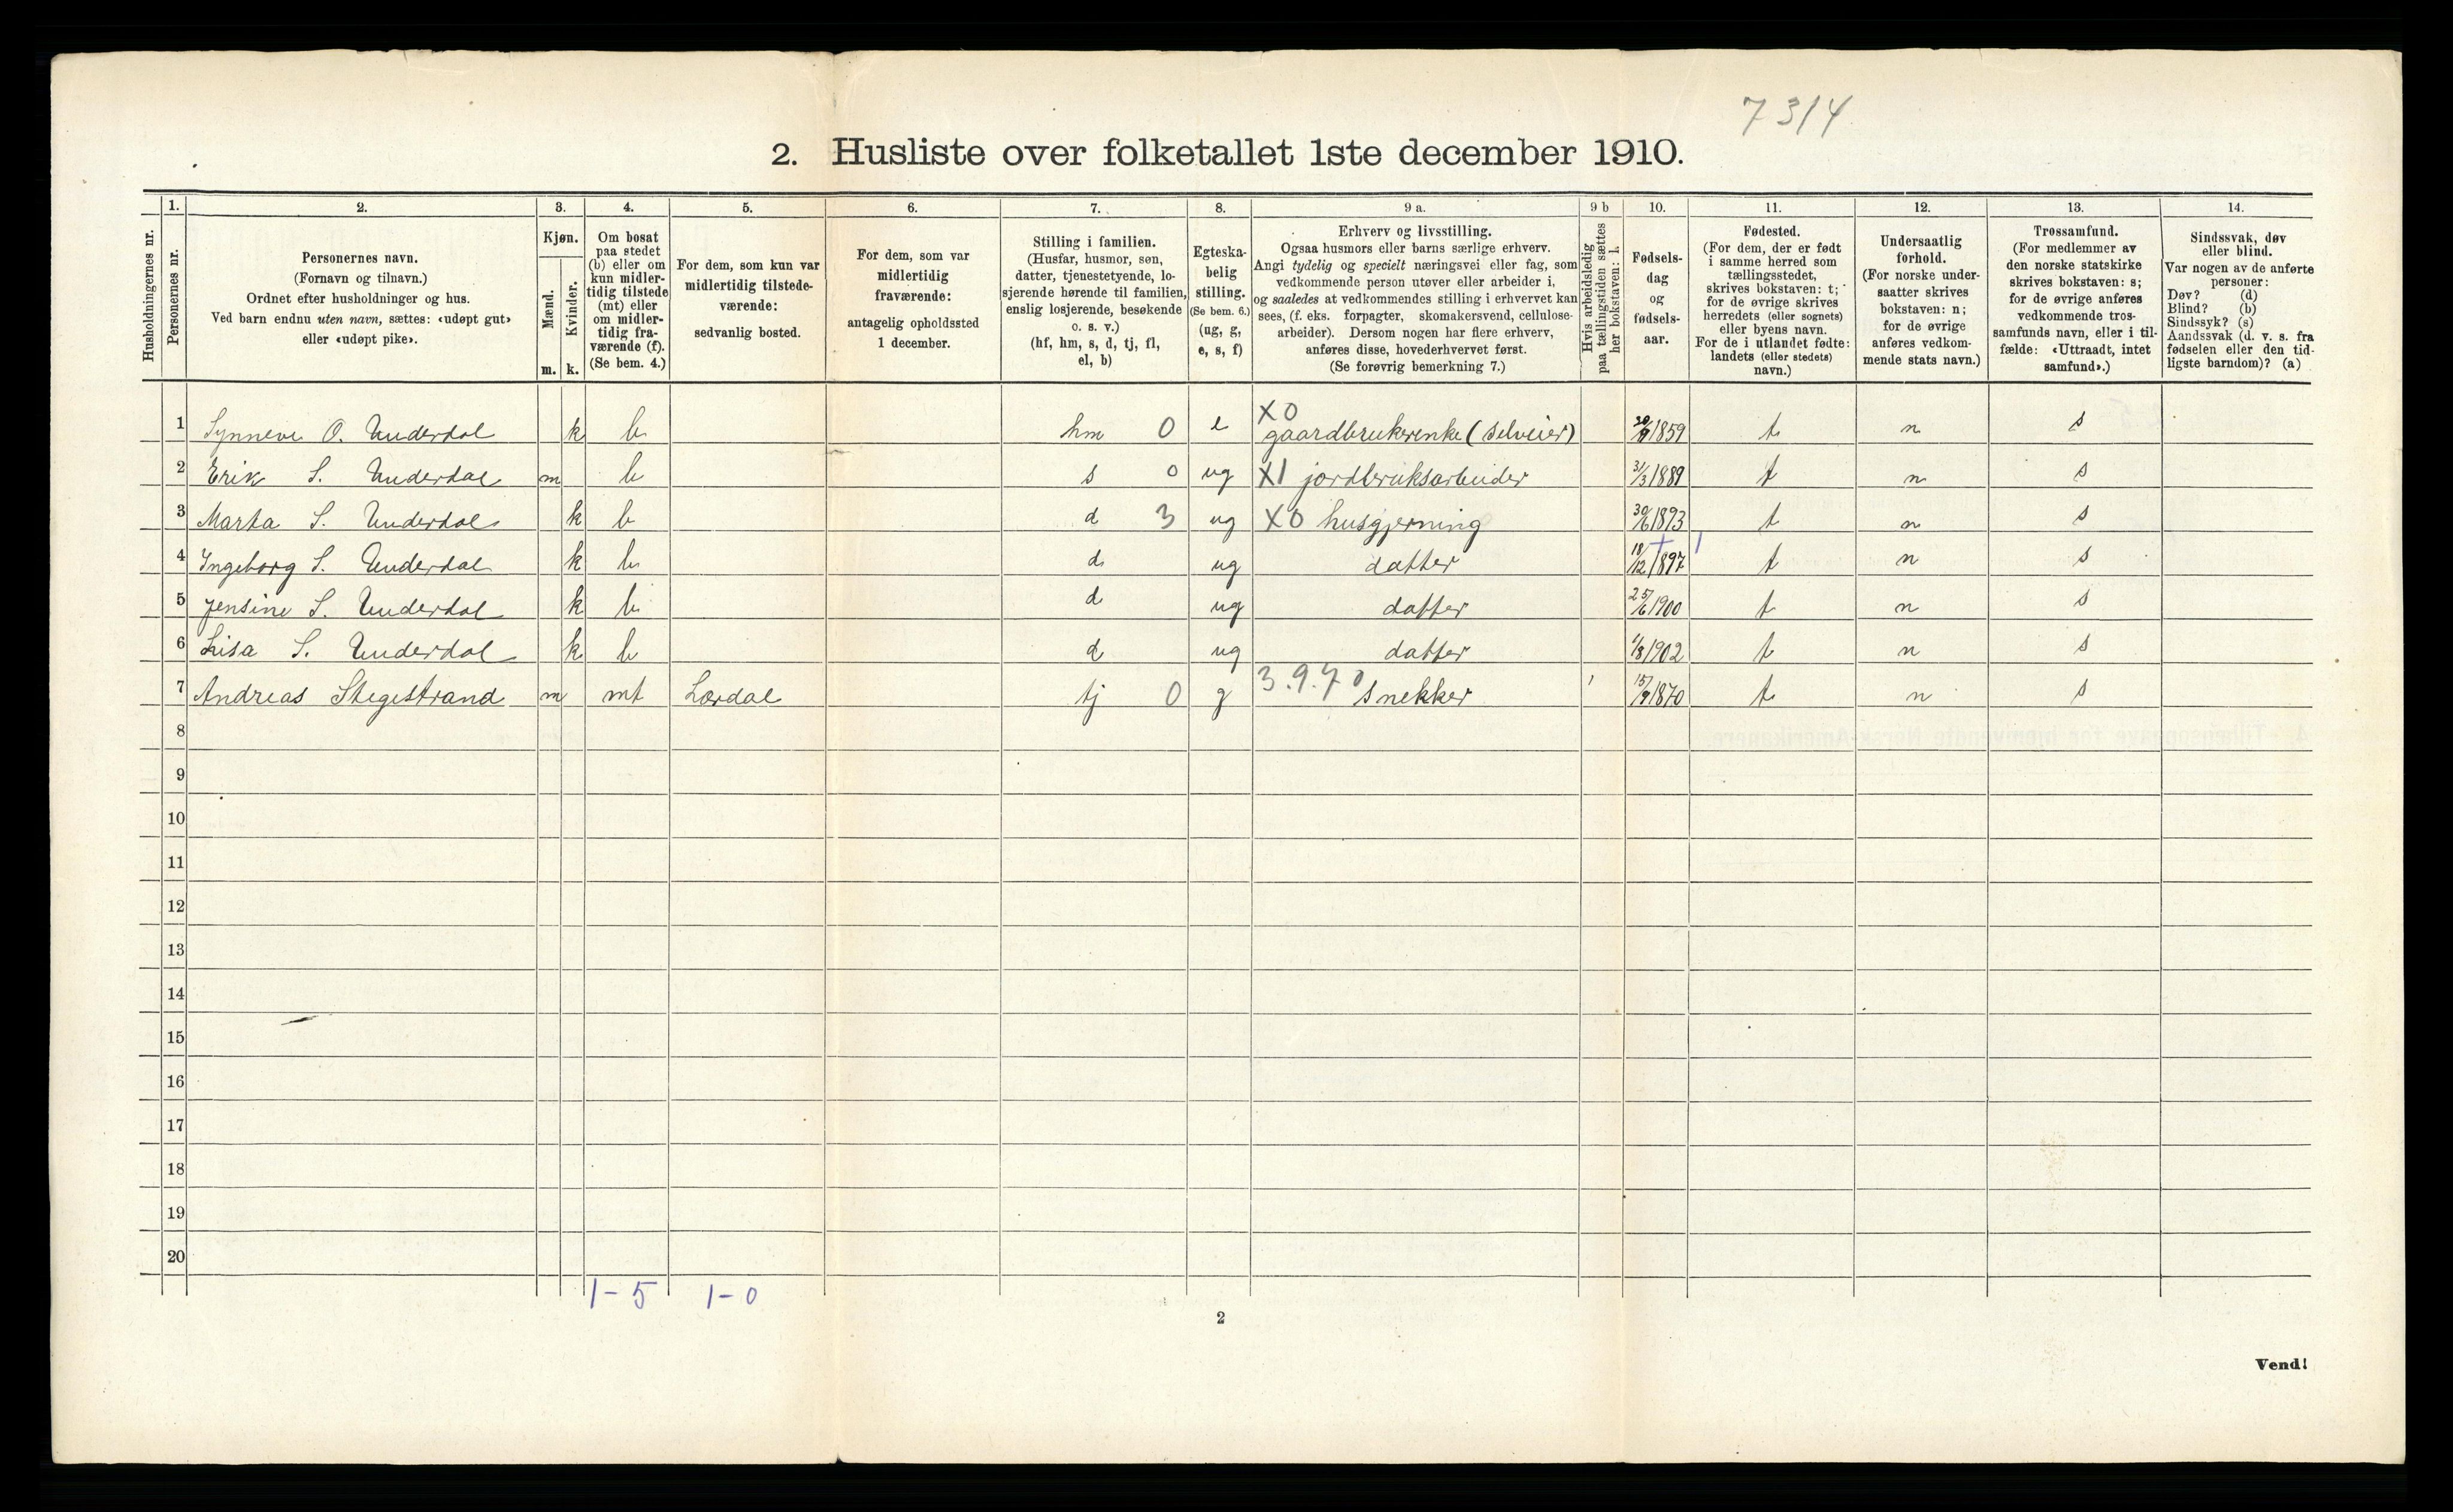 7314
2. Husliste over folketallet 1ste december 1910.
1. 2. 3. 4. 5. 6. 7. 8. 9 a. 9 b 10. 11. 12. 13. 14.
Husholdningernes nr.
Personernes nr.
Personernes navn.
(Fornavn og tilnavn.)
Ordnet efter husholdninger og hus.
Ved barn endnu uten navn, sættes: «udøpt gut»
eller «udøpt pike».
Kjøn.
Mænd.
Kvinder.
m. k.
Om bosat
paa stedet
(b) eller om
kun midler-
tidig tilstede
(mt) eller
om midler-
tidig fra-
værende (f).
(Se bem. 4.)
For dem, som kun var
midlertidig tilstede-
værende:
sedvanlig bosted.
For dem, som var
midlertidig
fraværende:
antagelig opholdssted
1 december.
Stilling i familien.
(Husfar, husmor, søn,
datter, tjenestetyende, lo-
sjerende hørende til familien,
enslig losjerende, besøkende
o. s. v.)
(hf, hm, s, d, tj, fl,
el, b)
Egteska-
belig
stilling.
(Se bem. 6.)
(ug, g,
e, s, f)
Erhverv og livsstilling.
Ogsaa husmors eller barns særlige erhverv.
Angi tydelig og specielt næringsvei eller fag, som
vedkommende person utøver eller arbeider i,
og saaledes at vedkommendes stilling i erhvervet kan
sees, (f. eks. forpagter, skomakersvend, cellulose-
arbeider). Dersom nogen har flere erhverv,
anføres disse, hovederhvervet først.
(Se forøvrig bemerkning 7.)
Hvis arbeidsledig
paa tællingstiden sættes
her bokstaven: l.
Fødsels-
dag
og
fødsels-
aar.
Fødested.
(For dem, der er født
i samme herred som
tællingsstedet,
skrives bokstaven: t;
for de øvrige skrives
herredets (eller sognets)
eller byens navn.
For de i utlandet fødte:
landets (eller stedets)
navn.)
Undersaatlig
forhold.
(For norske under-
saatter skrives
bokstaven: n;
for de øvrige
anføres vedkom-
mende stats navn.)
Trossamfund.
(For medlemmer av
den norske statskirke
skrives bokstaven: s;
for de øvrige anføres
vedkommende tros-
samfunds navn, eller i til-
fælde: «Uttraadt, intet
samfund».)
Sindssvak, døv
eller blind.
Var nogen av de anførte
personer:
Døv? (d)
Blind? (b)
Sindssyk? (s)
Aandssvak (d. v. s. fra
fødselen eller den tid-
ligste barndom)? (a)
1 Synneve O. Underdal k b hm 0 e X0 gaardbrukerenke (selveier) 1859 t n s
2 Erik S. Underdal m b s 0 ug X1 jordbruksarbeider 31/3 1889 t n s
3 Marta S. Underdal k b d 3 ug X0 husgjerning 30/6 1893 t n s
4 Ingeborg S. Underdal k b d ug datter 18/12 1897 t n s
5 Jensine S. Underdal k b d ug datter 25/6 1900 t n s
6 Lisa S. Underdal k b d ug datter 1/8 1902 t n s
7 Andreas Stegestrand m mt Lærdal tj 0 g 3.9.70 Snekker 15/9 1870 t n s
8
9
10
11
12
13
14
15
16
17
18
19
20
1-5 1-0
2
Vend!